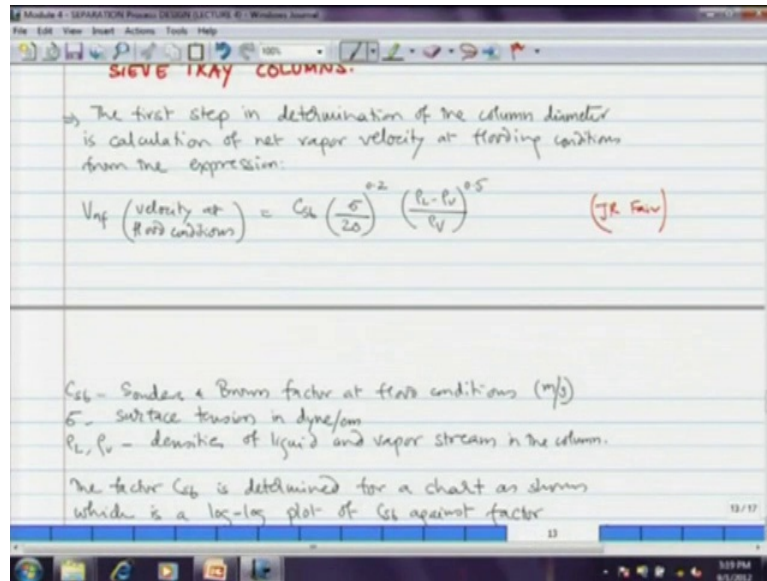 Module 4 - SEPARATION Process DESIGN (LECTURE 4) - Windows Journal
File Edit View Insert Actions Tools Help
100%
SIEVE TRAY COLUMNS.
⇒ The first step in determination of the column diameter
is calculation of net vapor velocity at flooding conditions
from the expression:
Vnf (velocity at flood conditions) = Csb (σ/20)^0.2 ((ρL-ρV)/ρV)^0.5 (JR Fair)
Csb - Souders & Brown factor at flood conditions (m/s)
σ - surface tension in dyne/cm
ρL, ρV - densities of liquid and vapor stream in the column.
The factor Csb is determined for a chart as shown
which is a log-log plot of Csb against factor
13/17
13
3:19 PM
6/1/2012